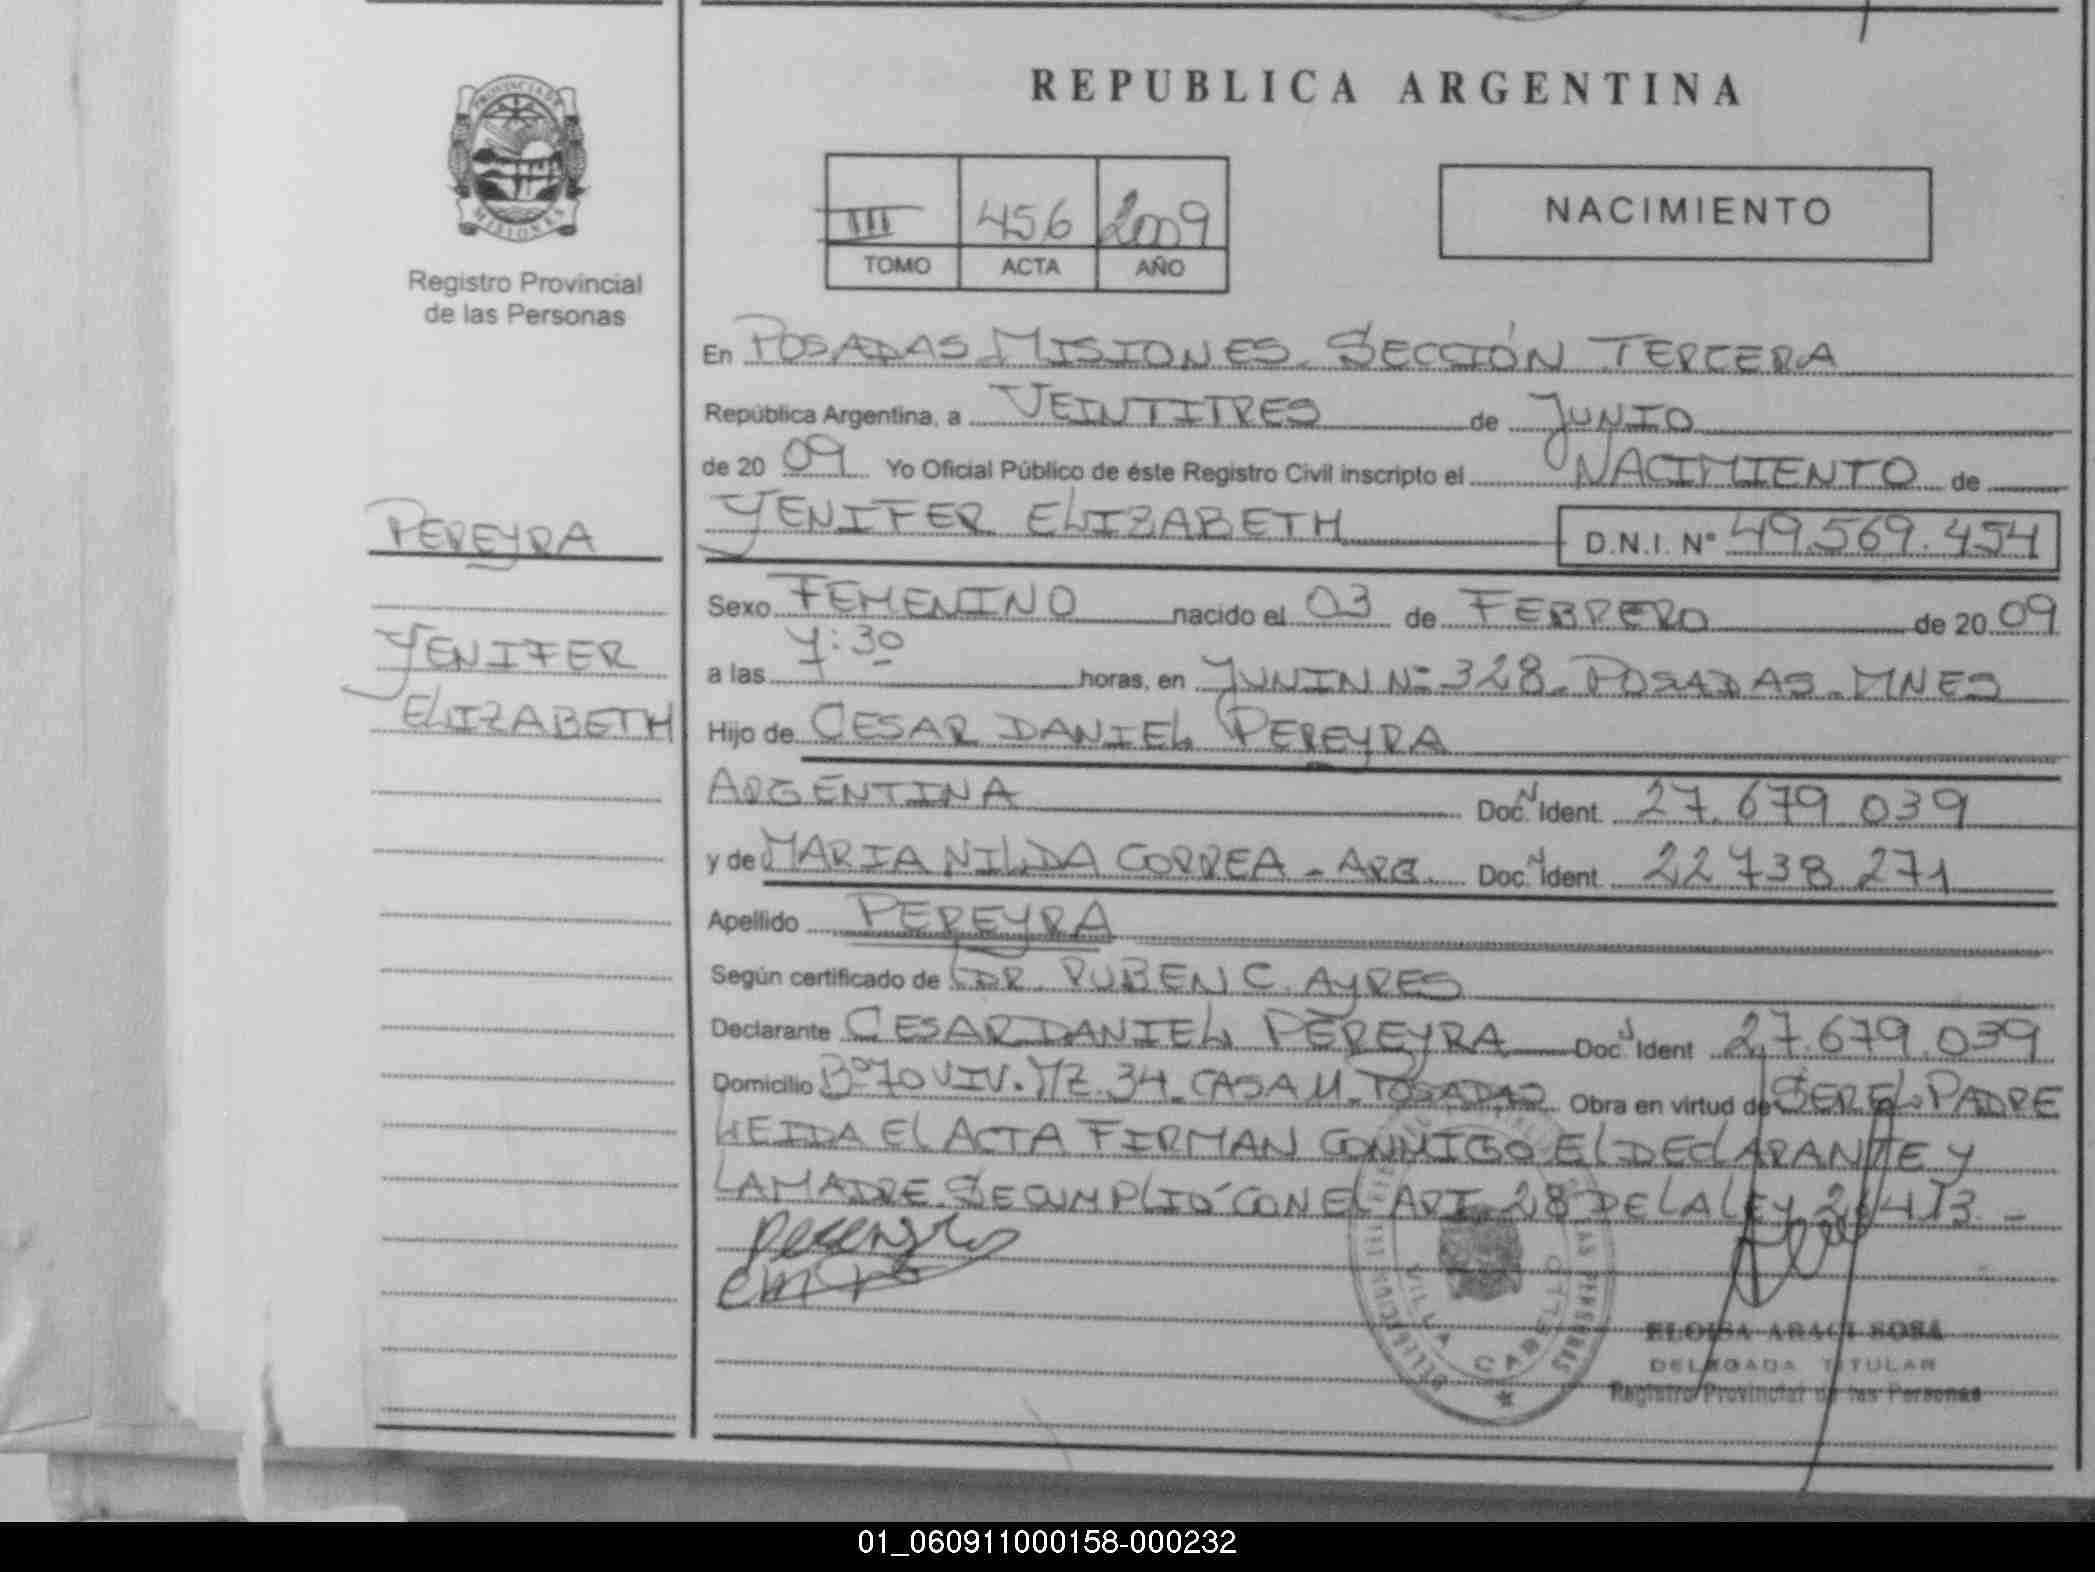 REPUBLICA ARGENTINA
PROVINCIA DE
MISIONES
Registro Provincial
de las Personas
III 456 2009
TOMO ACTA AÑO
NACIMIENTO
En POSADAS MISIONES. SECCIÓN TERCERA
República Argentina, a VEINTITRES de JUNIO
de 20 09 Yo Oficial Público de éste Registro Civil inscripto el NACIMIENTO de
YENIFER ELIZABETH D.N.I. Nº 49.569.454
PEREYRA
YENIFER
ELIZABETH
Sexo FEMENINO nacido el 03 de FEBRERO de 20 09
a las 7:30 horas, en JUNIN Nº 328. POSADAS. MNES
Hijo de CESAR DANIEL PEREYRA
ARGENTINA Doc. N Ident. 27.679 039
y de MARIA NILDA CORREA - ARG. Doc. N Ident. 22 738 271
Apellido PEREYRA
Según certificado de DR. RUBEN C. AYRES
Declarante CESAR DANIEL PEREYRA Doc. N Ident 27.679.039
Domicilio Bº 70 VIV. MZ. 34. CASA 11. POSADAS Obra en virtud de SER EL PADRE
LEIDA EL ACTA FIRMAN CONMIGO EL DECLARANTE Y
LA MADRE. SE CUMPLIÓ CON EL ART. 28 DE LA LEY 26413 -
VILLA CABELLO
ELOISA ARACI SOSA
DELEGADA TITULAR
Registro Provincial de las Personas
01_060911000158-000232